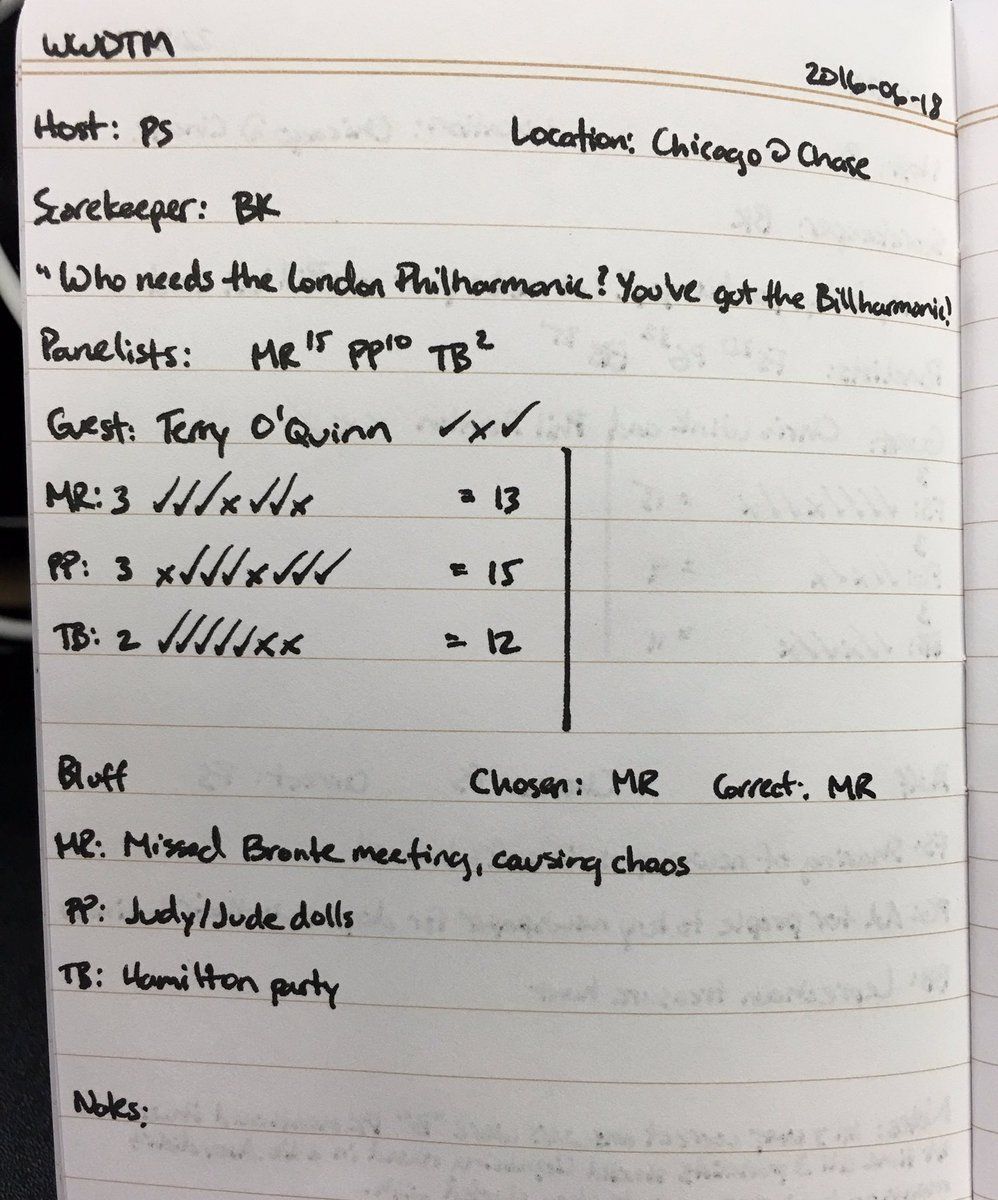 WWDTM
2016-06-18
Host: PS Location: Chicago @ Chase
Scorekeeper: BK
"Who needs the London Philharmonic? You've got the Billharmonic!
Panelists: MR 15 PP 10 TB 2
Guest: Terry O'Quinn ✓ x ✓
MR: 3 ✓✓✓x✓✓x = 13
PP: 3 x✓✓✓x✓✓✓ = 15
TB: 2 ✓✓✓✓✓xx = 12
Bluff Chosen: MR Correct: MR
MR: Missed Bronte meeting, causing chaos
PP: Judy/Jude dolls
TB: Hamilton party
Notes: